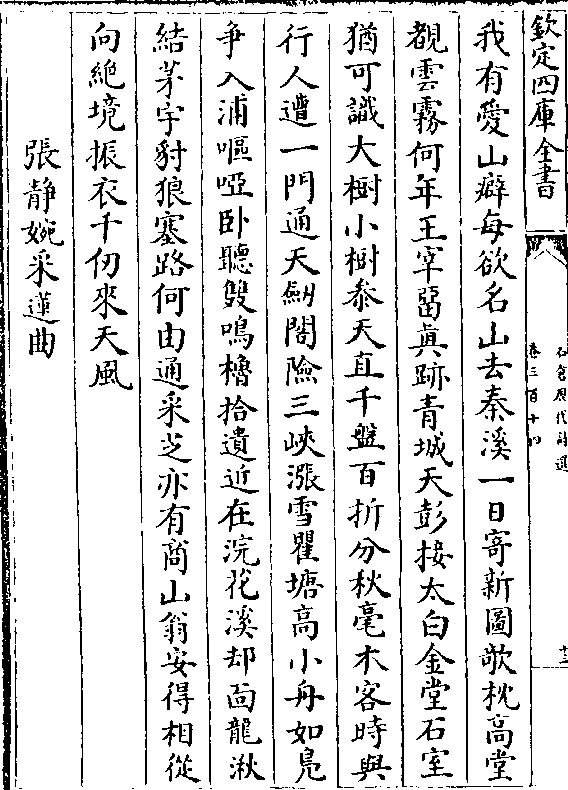 欽定四庫全書
石倉歷代詩選
卷三百十四
十三
我有愛山癖每欲名山去秦溪一日寄新圖欹枕高堂
覩雲霧何年王宰留真跡青城天彭接太白金堂石室
猶可識大樹小樹叅天直千盤百折分秋毫木客時與
行人遭一門通天劒閣險三峽漲雪瞿塘高小舟如鳬
爭入浦嘔啞卧聽雙鳴櫓拾遺近在浣花溪却面龍湫
結茅宇豺狼塞路何由通采芝亦有商山翁安得相從
向絶境振衣千仞來天風
張靜婉采蓮曲